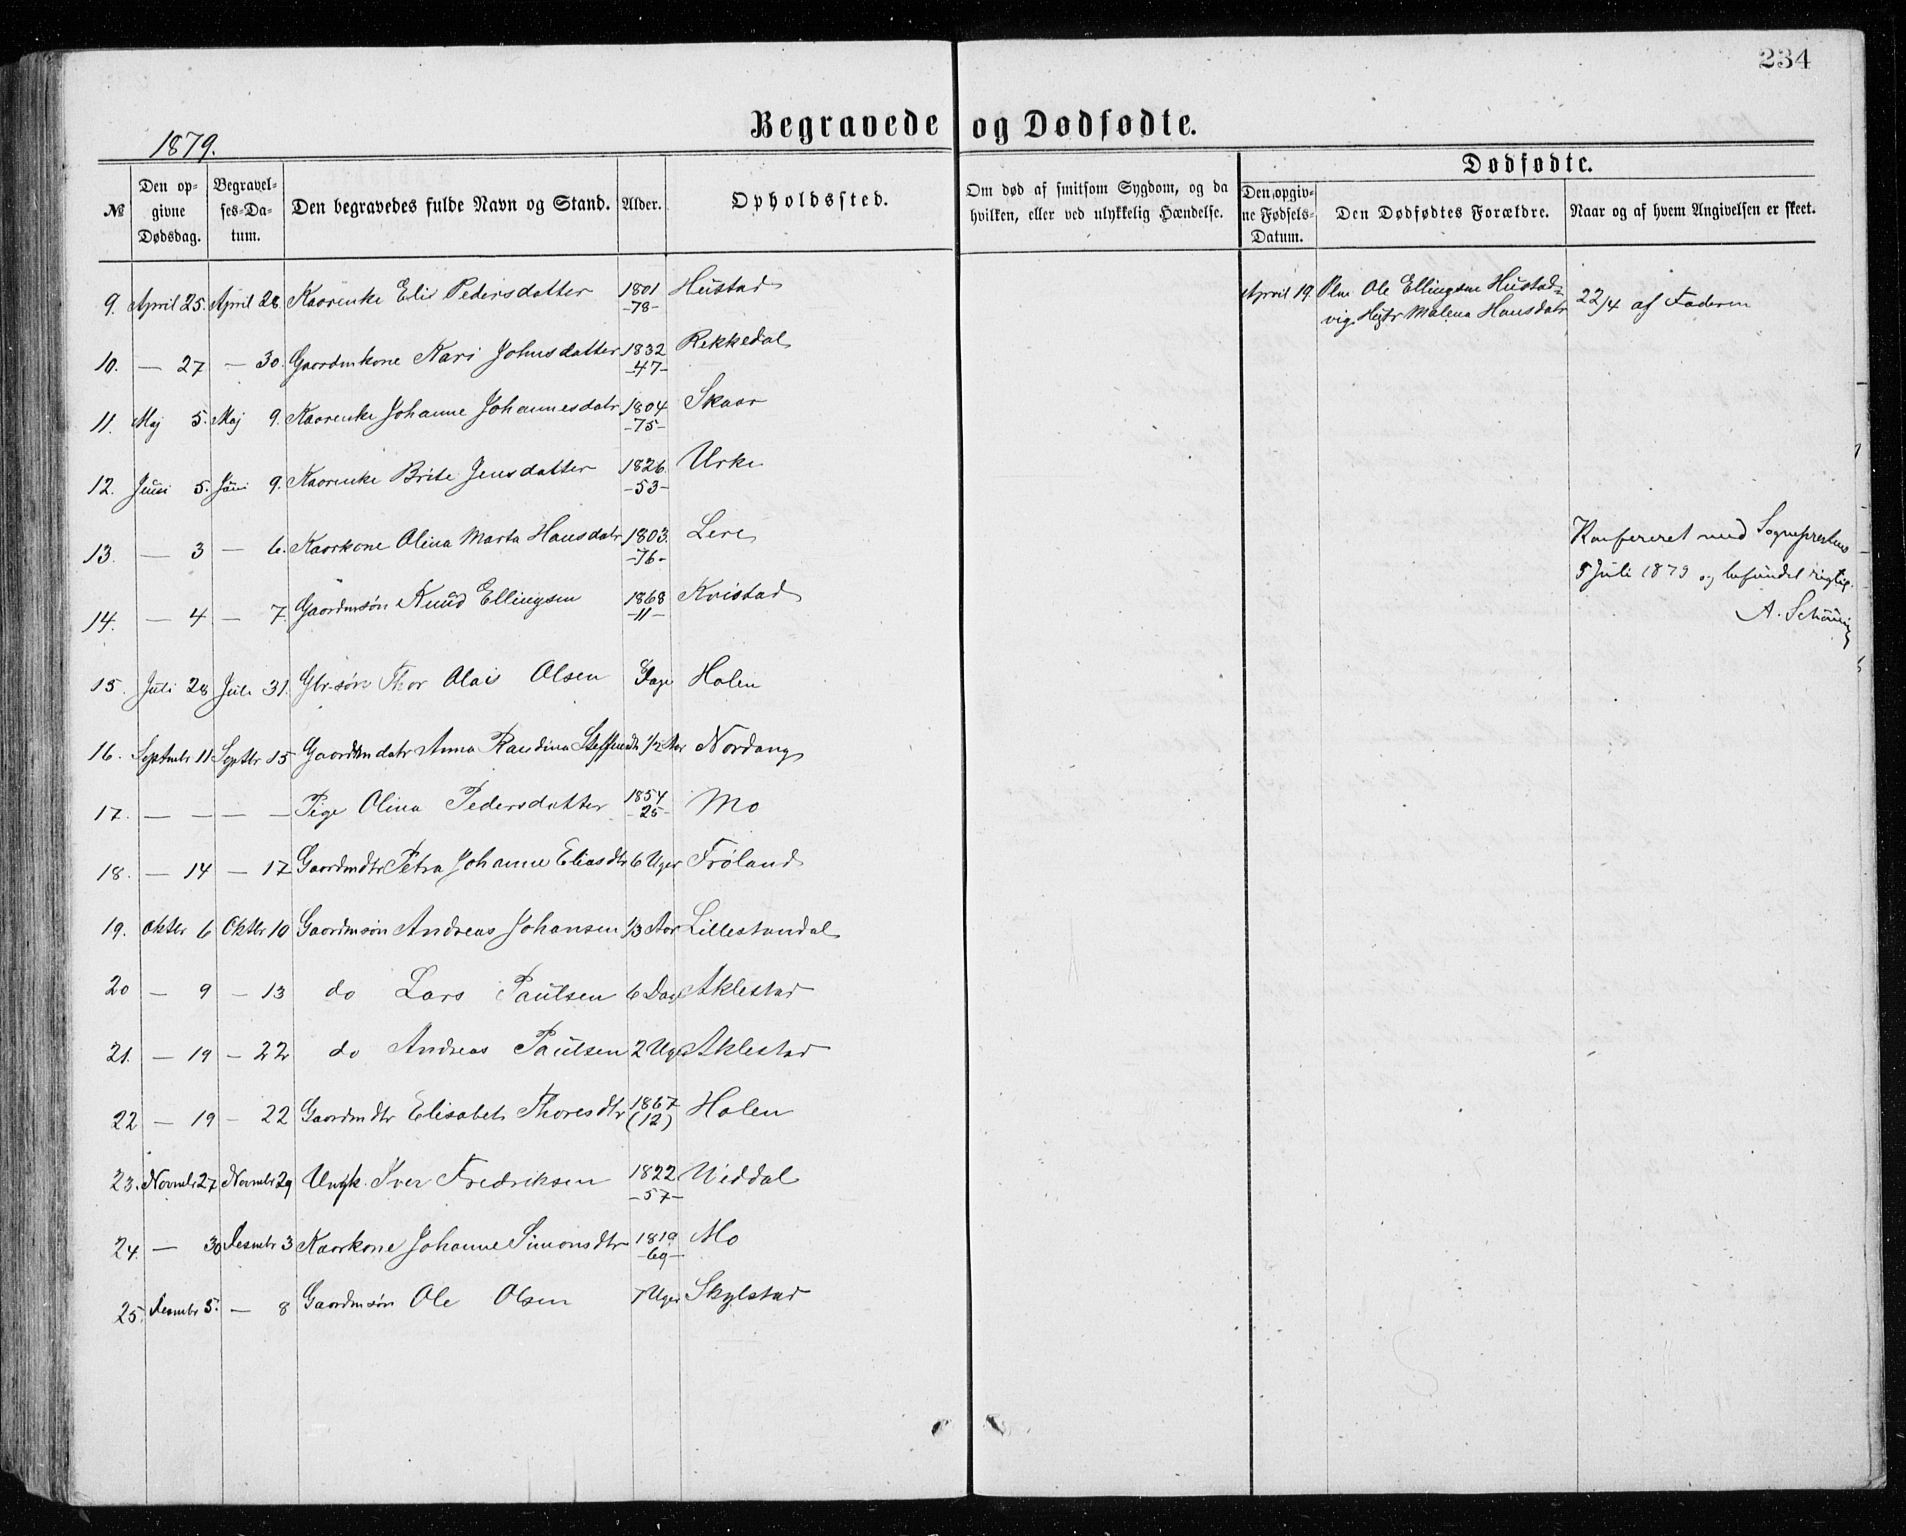 234
Begravede og Dødfødte.
1879.
Dødfødte.
№ Den opgivne Dødsdag. Begravelses-Datum. Den begravedes fulde Navn og Stand. Alder. Opholdssted. Om død af smitsom Sygdom, og da hvilken, eller ved ulykkelig Hændelse. Den opgivne Fødsels-Datum. Den Dødfødtes Forældre. Naar og af hvem Angivelsen er skeet.
9. April 25. April 28. Kaarenke Elie Pedersdatter 1801 -78- Hustad April 19. Ole Ellingsen Hustadvig Malena Hansdatr 22/4 af Faderen
10. — 27 — 30. Gaardmkone Kari Johnsdatter 1832 -47- Rekkedal
11. Maj 5. Maj 9. Kaarenke Johanne Johannesdatr 1804 -75- Skaar
12. Juni 5. Juni 9. Kaarenke Brite Jensdatter 1826 -53- Urke
13. — 3 — 6. Kaarkone Olina Marta Hansdatr 1803. -76- Lere
Konfereret med Sogneprestens
5 Juli 1879 og befundet rigtig.
14. — 4 — 7. Gaardmsøn Knud Ellingsen 1868 -11- Kvistad
A. Schøning
15. Juli 28 Juli 31. Gbr.søn Thor Olai Olsen 8 Dage Holen
16. Septembr 11 Septbr 15 Gaardmdatr Anna Randina Steffensdtr 1/2 Aar Nordang
17. — — — — Pige Olina Pedersdatter 1854 -25- Mo
18. — 14 — 17 Gaardmdtr Petra Johanne Eliasdtr 6 Uger Frøland
19. Oktbr 6 Oktbr 10 Gaardmsøn Andreas Johansen 1/3 Aar Lillestandal
20 — 9 — 13 do Lars Paulsen 6 Dag Aklestad
21. — 19 — 22 do Andreas Paulsen 2 Uger Aklestad
22 — 19 — 22 Gaardmdtr Elisabet Thoresdtr 1867 (12) Holen
23. Novmbr 27 Novmbr 29 Ungk. Iver Fredriksen 1822 -57- Viddal
24. — 30 Desmbr 3 Kaarkone Johanne Simonsdtr 1819 -60- Mo
25. Desmbr 5. — 8 Gaardmsøn Ole Olsen 7 Uger Skylstad